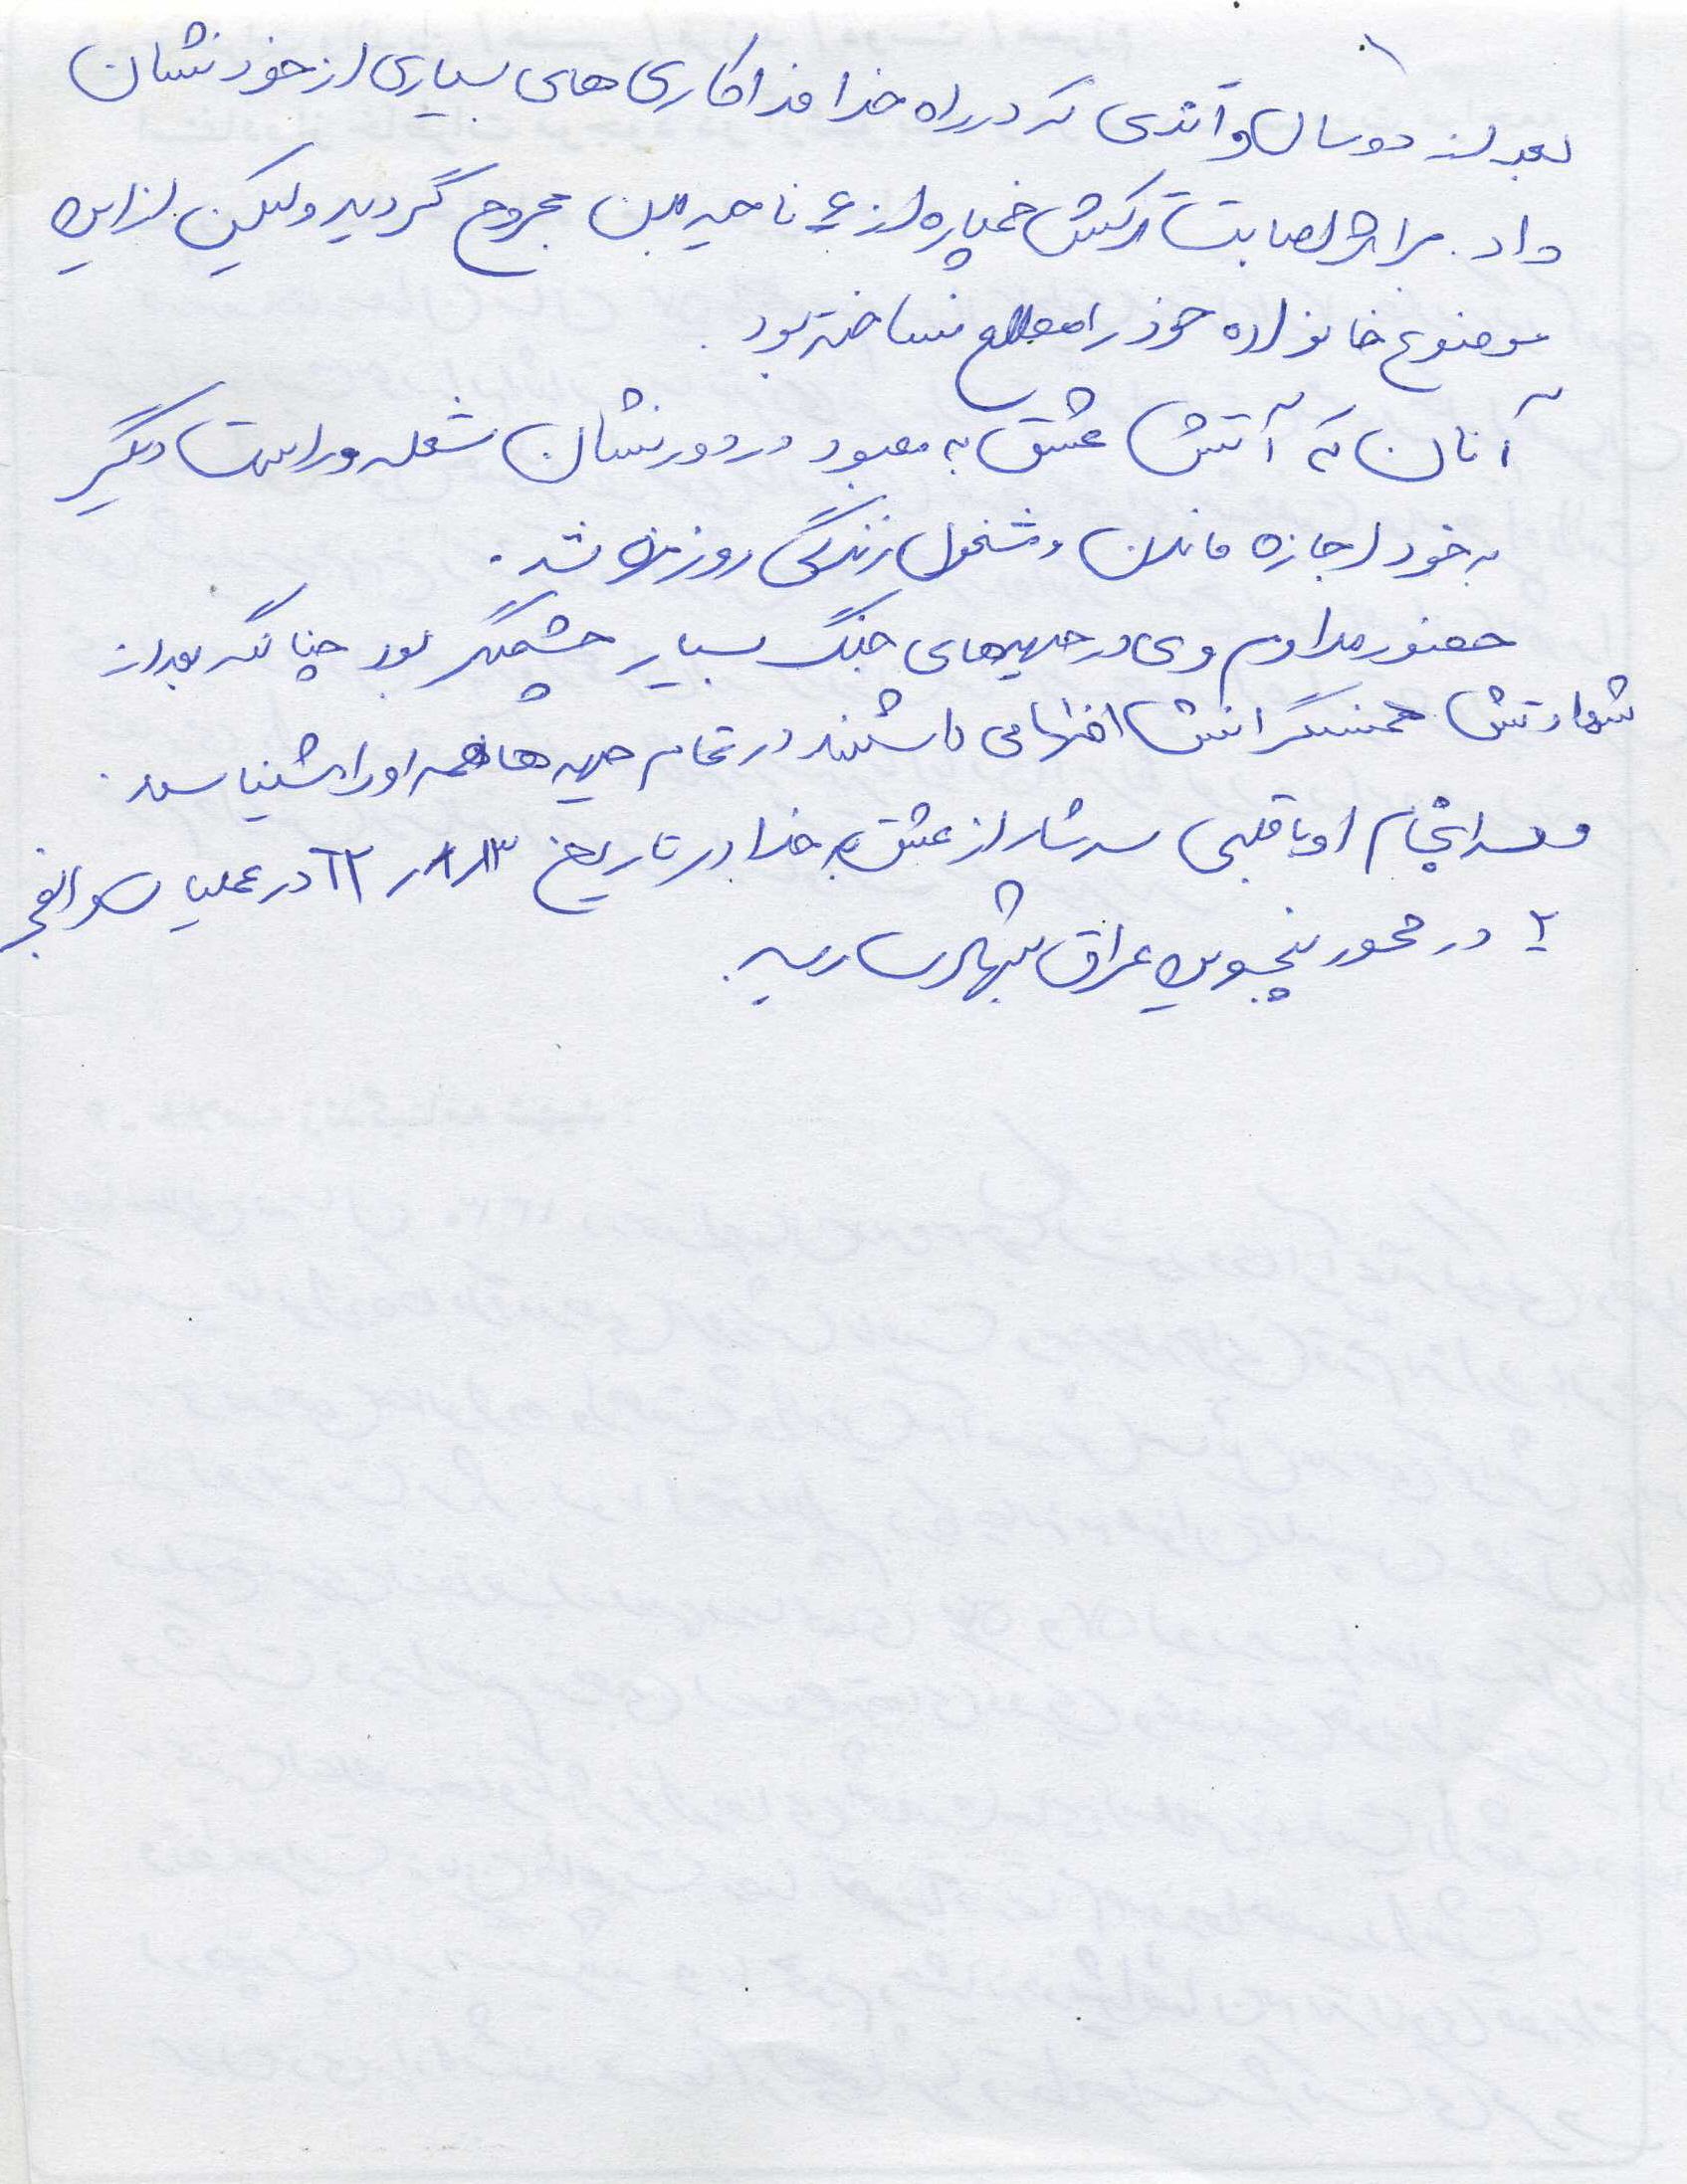 بعد از دو سال و اندی که در راه خدا فداکاری های بسیاری از خود نشان
داد. بر اثر اصابت ترکش خمپاره از ۴ ناحیه بدن مجروح گردید ولیکن از این
موضوع خانواده خود را مطلع نساخته بود.
آنان که آتش عشق به معبود در درونشان شعله ور است دیگر
به خود اجازه ماندن و مشغول زندگی روزمره شد.
حضور مداوم وی در جبهه های جنگ بسیار چشمگیر بود چنانکه بعد از
شهادتش همسنگرانش اظهار می داشتند در تمام جبهه ها همه او را میشناسند.
و سرانجام او با قلبی سرشار از عشق به خدا در تاریخ ۶۲/۸/۱۳ در عملیات والفجر
۴ در محور پنجوین عراق بشهادت رسید.